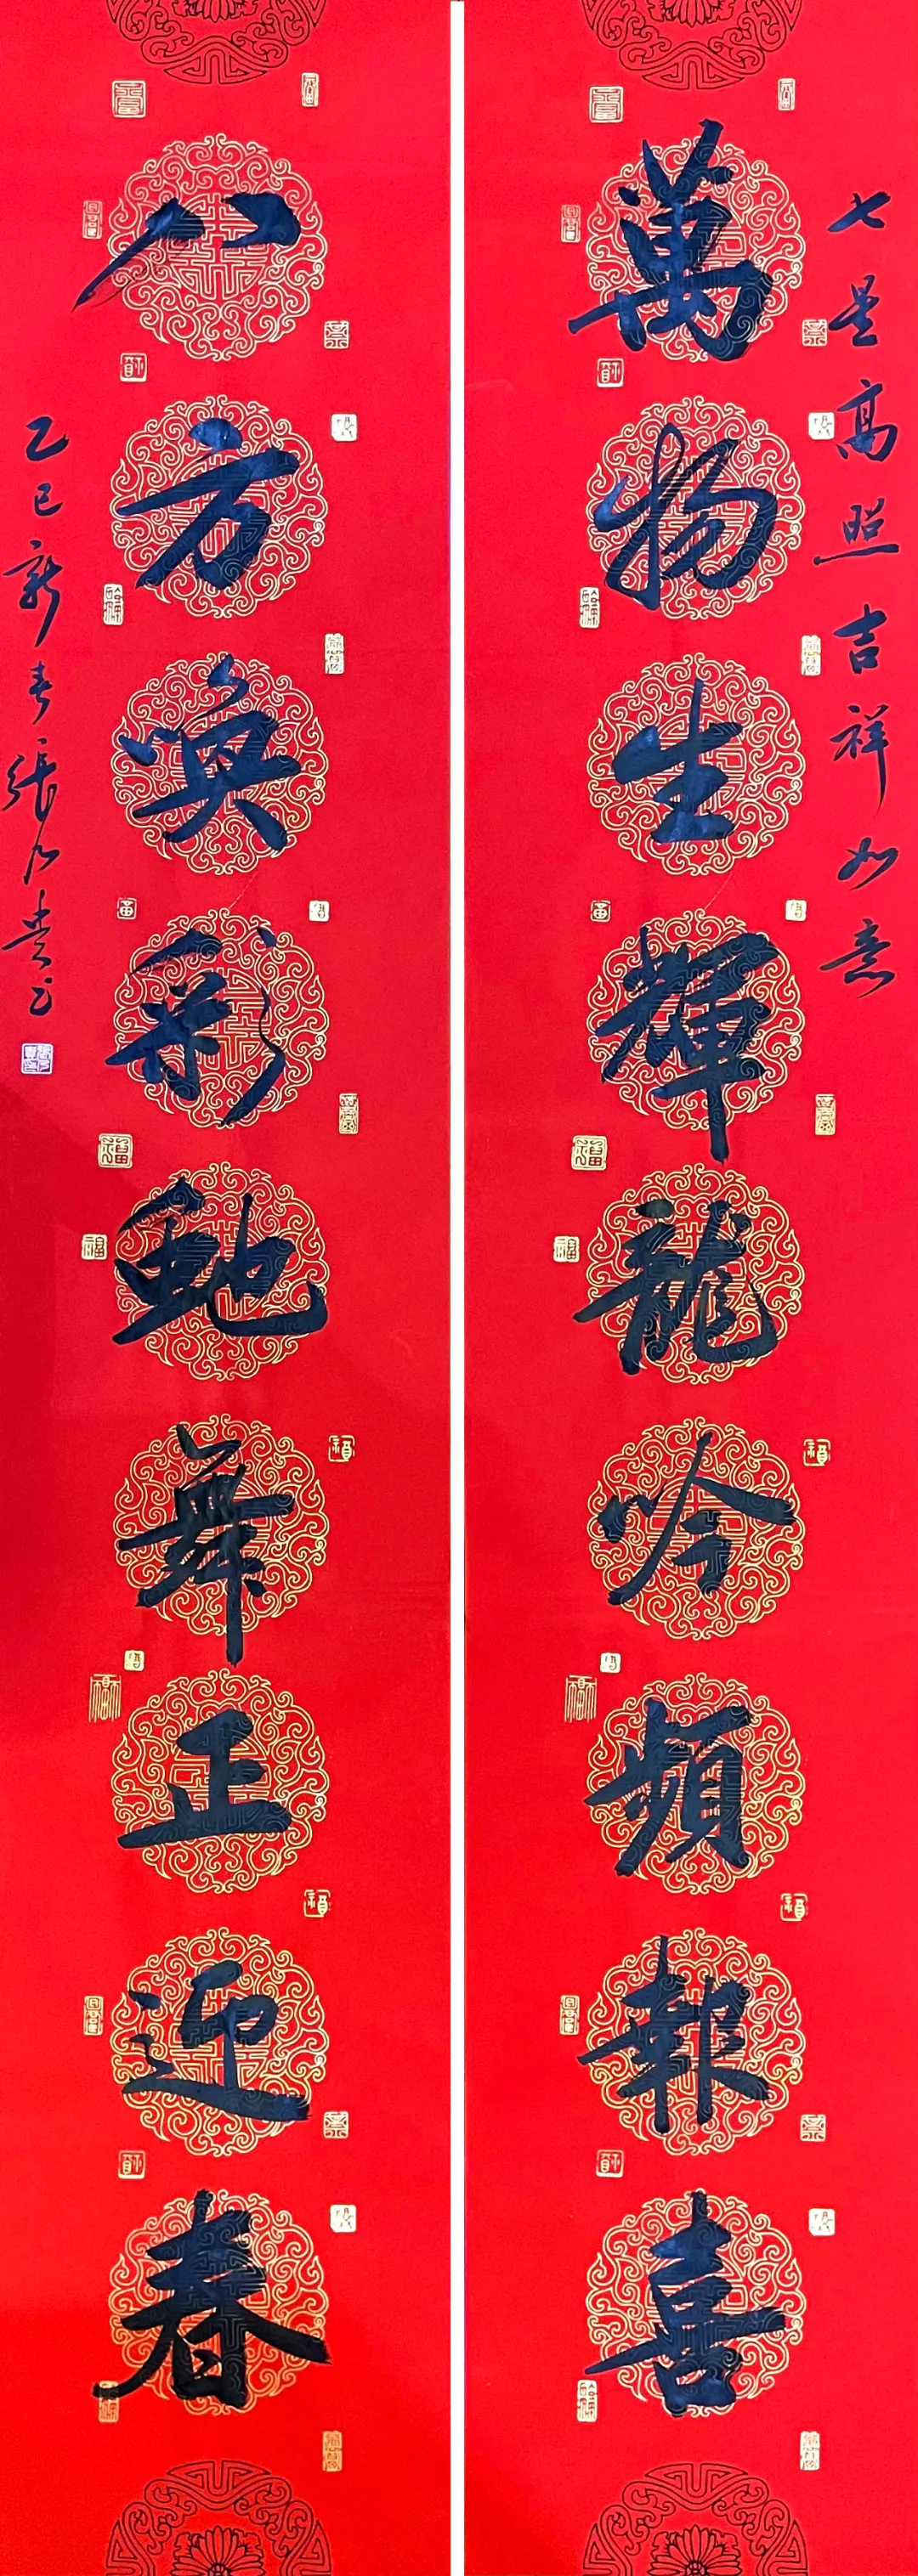 七星高照吉祥如意
萬物生輝龍吟頻報喜
八方喚彩虵舞正迎春
乙巳新春張乃贵书